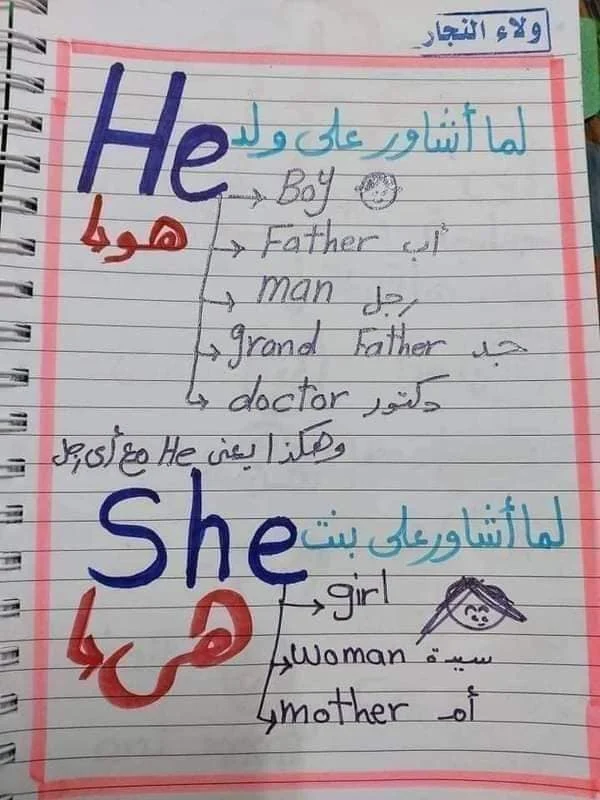 ولاء النجار
He لما أشاور على ولد
هويا
Boy
Father أب
man رجل
grand Father جد
doctor دكتور
وهكذا يعنى He مع أى رجل
She لما أشاور على بنت
هى يا
girl
woman سيدة
mother أم